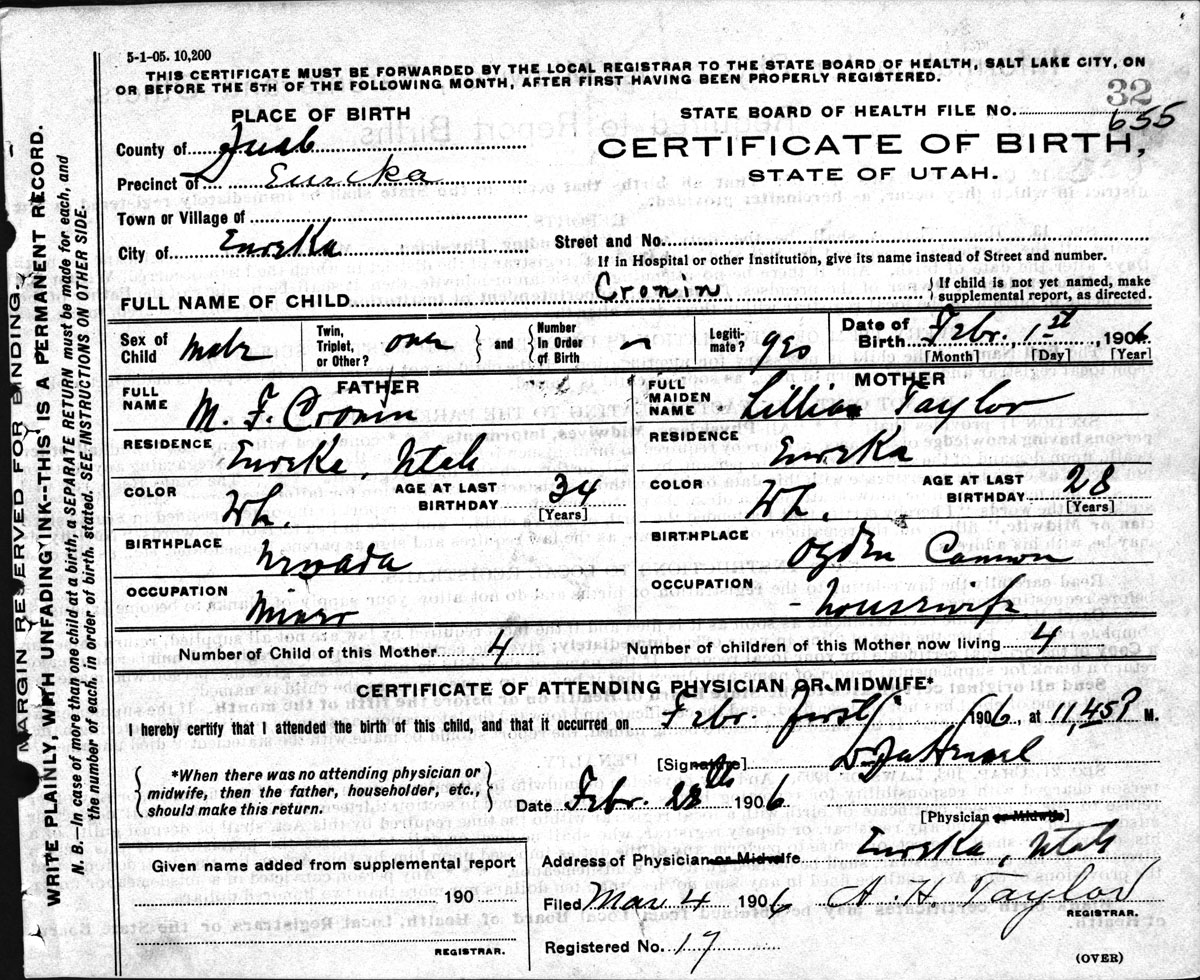 5-1-05. 10,200
THIS CERTIFICATE MUST BE FORWARDED BY THE LOCAL REGISTRAR TO THE STATE BOARD OF HEALTH, SALT LAKE CITY, ON
OR BEFORE THE 5TH OF THE FOLLOWING MONTH, AFTER FIRST HAVING BEEN PROPERLY REGISTERED.
32
PLACE OF BIRTH
STATE BOARD OF HEALTH FILE NO. 655
County of Juab
CERTIFICATE OF BIRTH,
STATE OF UTAH.
Precinct of Eureka
Town or Village of
City of Eureka
Street and No.
If in Hospital or other Institution, give its name instead of Street and number.
FULL NAME OF CHILD Cronin { If child is not yet named, make
supplemental report, as directed.
Sex of Child male
Twin, Triplet, or Other? one } and { Number In Order of Birth –
Legitimate? yes
Date of Birth Febr. 1st, 1906
[Month] [Day] [Year]
FATHER
FULL NAME M. F. Cronin
RESIDENCE Eureka, Utah
COLOR Wh.
AGE AT LAST BIRTHDAY 34
[Years]
BIRTHPLACE Nevada
OCCUPATION Miner
MOTHER
FULL MAIDEN NAME Lillian Taylor
RESIDENCE Eureka
COLOR Wh.
AGE AT LAST BIRTHDAY 28
[Years]
BIRTHPLACE Ogden
OCCUPATION Housewife
Number of Child of this Mother 4
Number of children of this Mother now living 4
CERTIFICATE OF ATTENDING PHYSICIAN OR MIDWIFE*
I hereby certify that I attended the birth of this child, and that it occurred on Febr. first 1906, at 11,45 P M.
{ *When there was no attending physician or
midwife, then the father, householder, etc.,
should make this return. }
[Signature]
Date Febr. 28th 1906
[Physician or Midwife]
Given name added from supplemental report
190
REGISTRAR.
Address of Physician or Midwife Eureka, Utah
Filed Mar 4 1906 A. H. Taylor
REGISTRAR.
Registered No. 17
(OVER)
MARGIN RESERVED FOR BINDING
WRITE PLAINLY, WITH UNFADING INK--THIS IS A PERMANENT RECORD.
N. B.—In case of more than one child at a birth, a SEPARATE RETURN must be made for each, and
the number of each, in order of birth, stated. SEE INSTRUCTIONS ON OTHER SIDE.